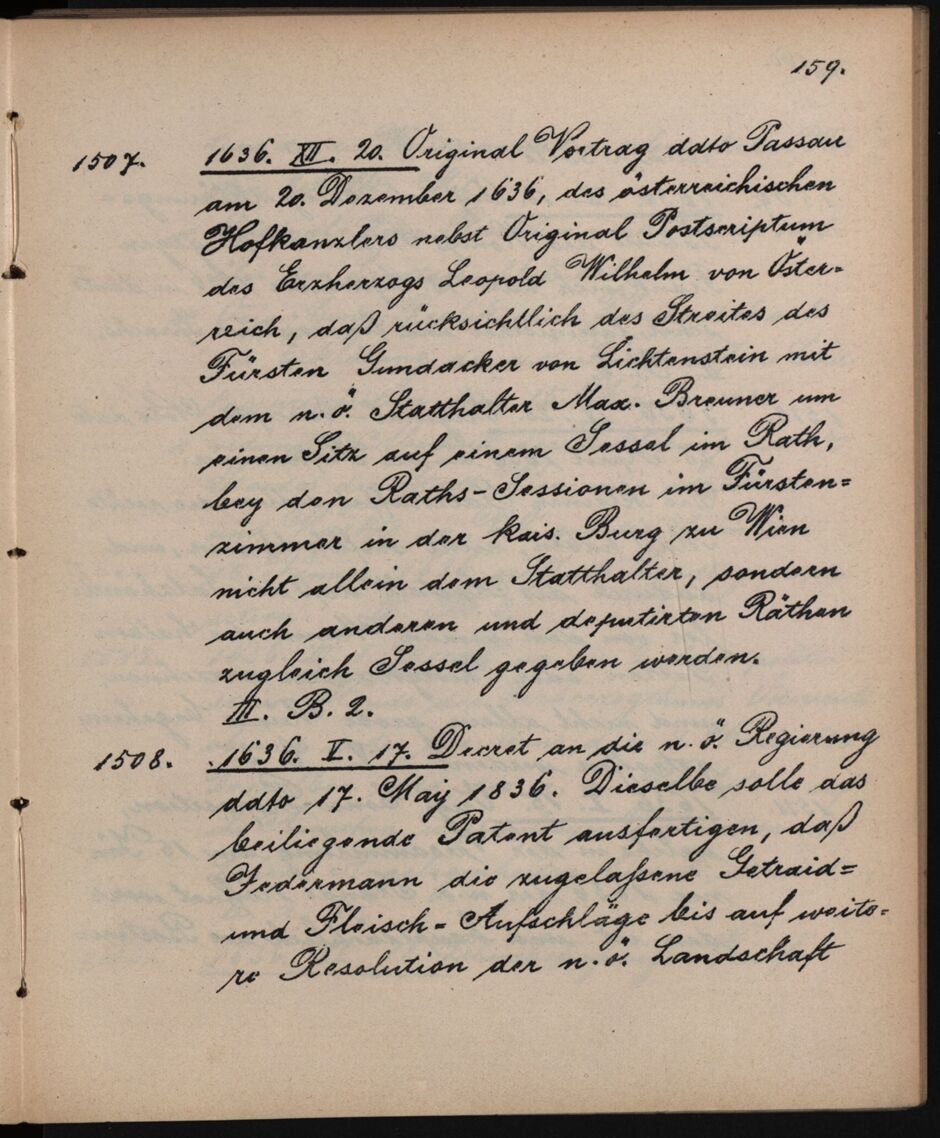 159.
1507. 1636. XII. 20. Original Vortrag ddto Passau
am 20. Dezember 1636, des österreichischen
Hofkanzlers nebst Original Postscriptum
des Erzherzogs Leopold Wilhelm von Öster=
reich, daß rücksichtlich des Streites des
Fürsten Gundacker von Lichtenstein mit
dem n.ö. Statthalter Max. Breuner um
einen Sitz auf einem Sessel im Rath,
bey den Raths-Sessionen im Fürsten=
zimmer in der kais. Burg zu Wien
nicht allein dem Statthalter, sondern
auch anderen und deputirten Räthen
zugleich Sessel gegeben werden.
III. B. 2.
1508. 1636. V. 17. Decret an die n.ö. Regierung
ddto 17. May 1836. Dieselbe solle das
beiliegende Patent ausfertigen, daß
Jedermann die zugelaßene Getraid=
und Fleisch=Aufschläge bis auf weite=
re Resolution der n.ö. Landschaft